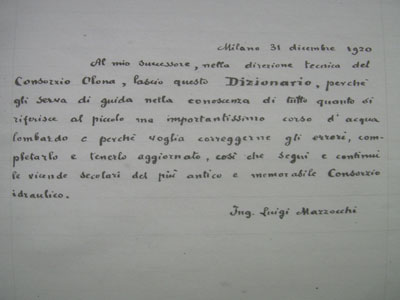 Milano 31 dicembre 1920
Al mio successore, nella direzione tecnica del
Consorzio Olona, lascio questo Dizionario, perchè
gli serva di guida nella conoscenza di tutto quanto si
riferisce al piccolo ma importantissimo corso d'acqua
lombardo e perchè voglia correggerne gli errori, com-
pletarlo e tenerlo aggiornato, così che segui e continui
le vicende secolari del più antico e memorabile Consorzio
idraulico.
Ing. Luigi Mazzocchi